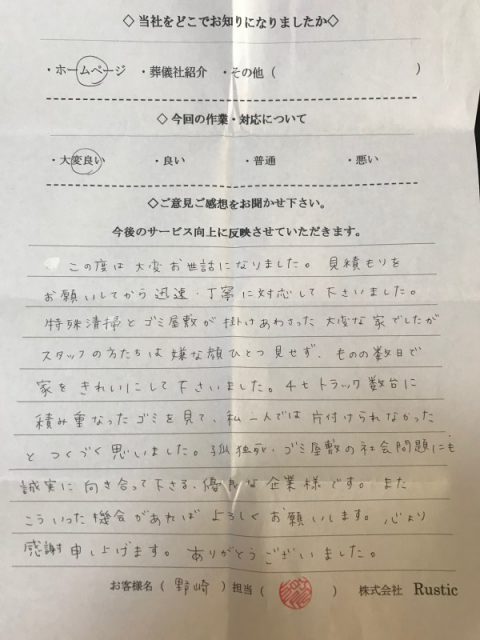 ◇当社をどこでお知りになりましたか◇
・ホームページ ・葬儀社紹介 ・その他（ ）
◇今回の作業・対応について
・大変良い ・良い ・普通 ・悪い
◇ご意見ご感想をお聞かせ下さい。
今後のサービス向上に反映させていただきます。
この度は大変お世話になりました。見積もりを
お願いしてから迅速・丁寧に対応して下さいました。
特殊清掃とゴミ屋敷が掛けあわさった大変な家でしたが
スタッフの方たちは嫌な顔ひとつ見せず、ものの数日で
家をきれいにして下さいました。4tトラック数台に
積み重なったゴミを見て、私一人では片付けられなかった
とつくづく思いました。孤独死、ゴミ屋敷の社会問題にも
誠実に向き合って下さる、優良な企業様です。また
こういった機会があればよろしくお願いします。心より
感謝申し上げます。ありがとうございました。
お客様名（ 野崎 ）担当（ ） 株式会社 Rustic